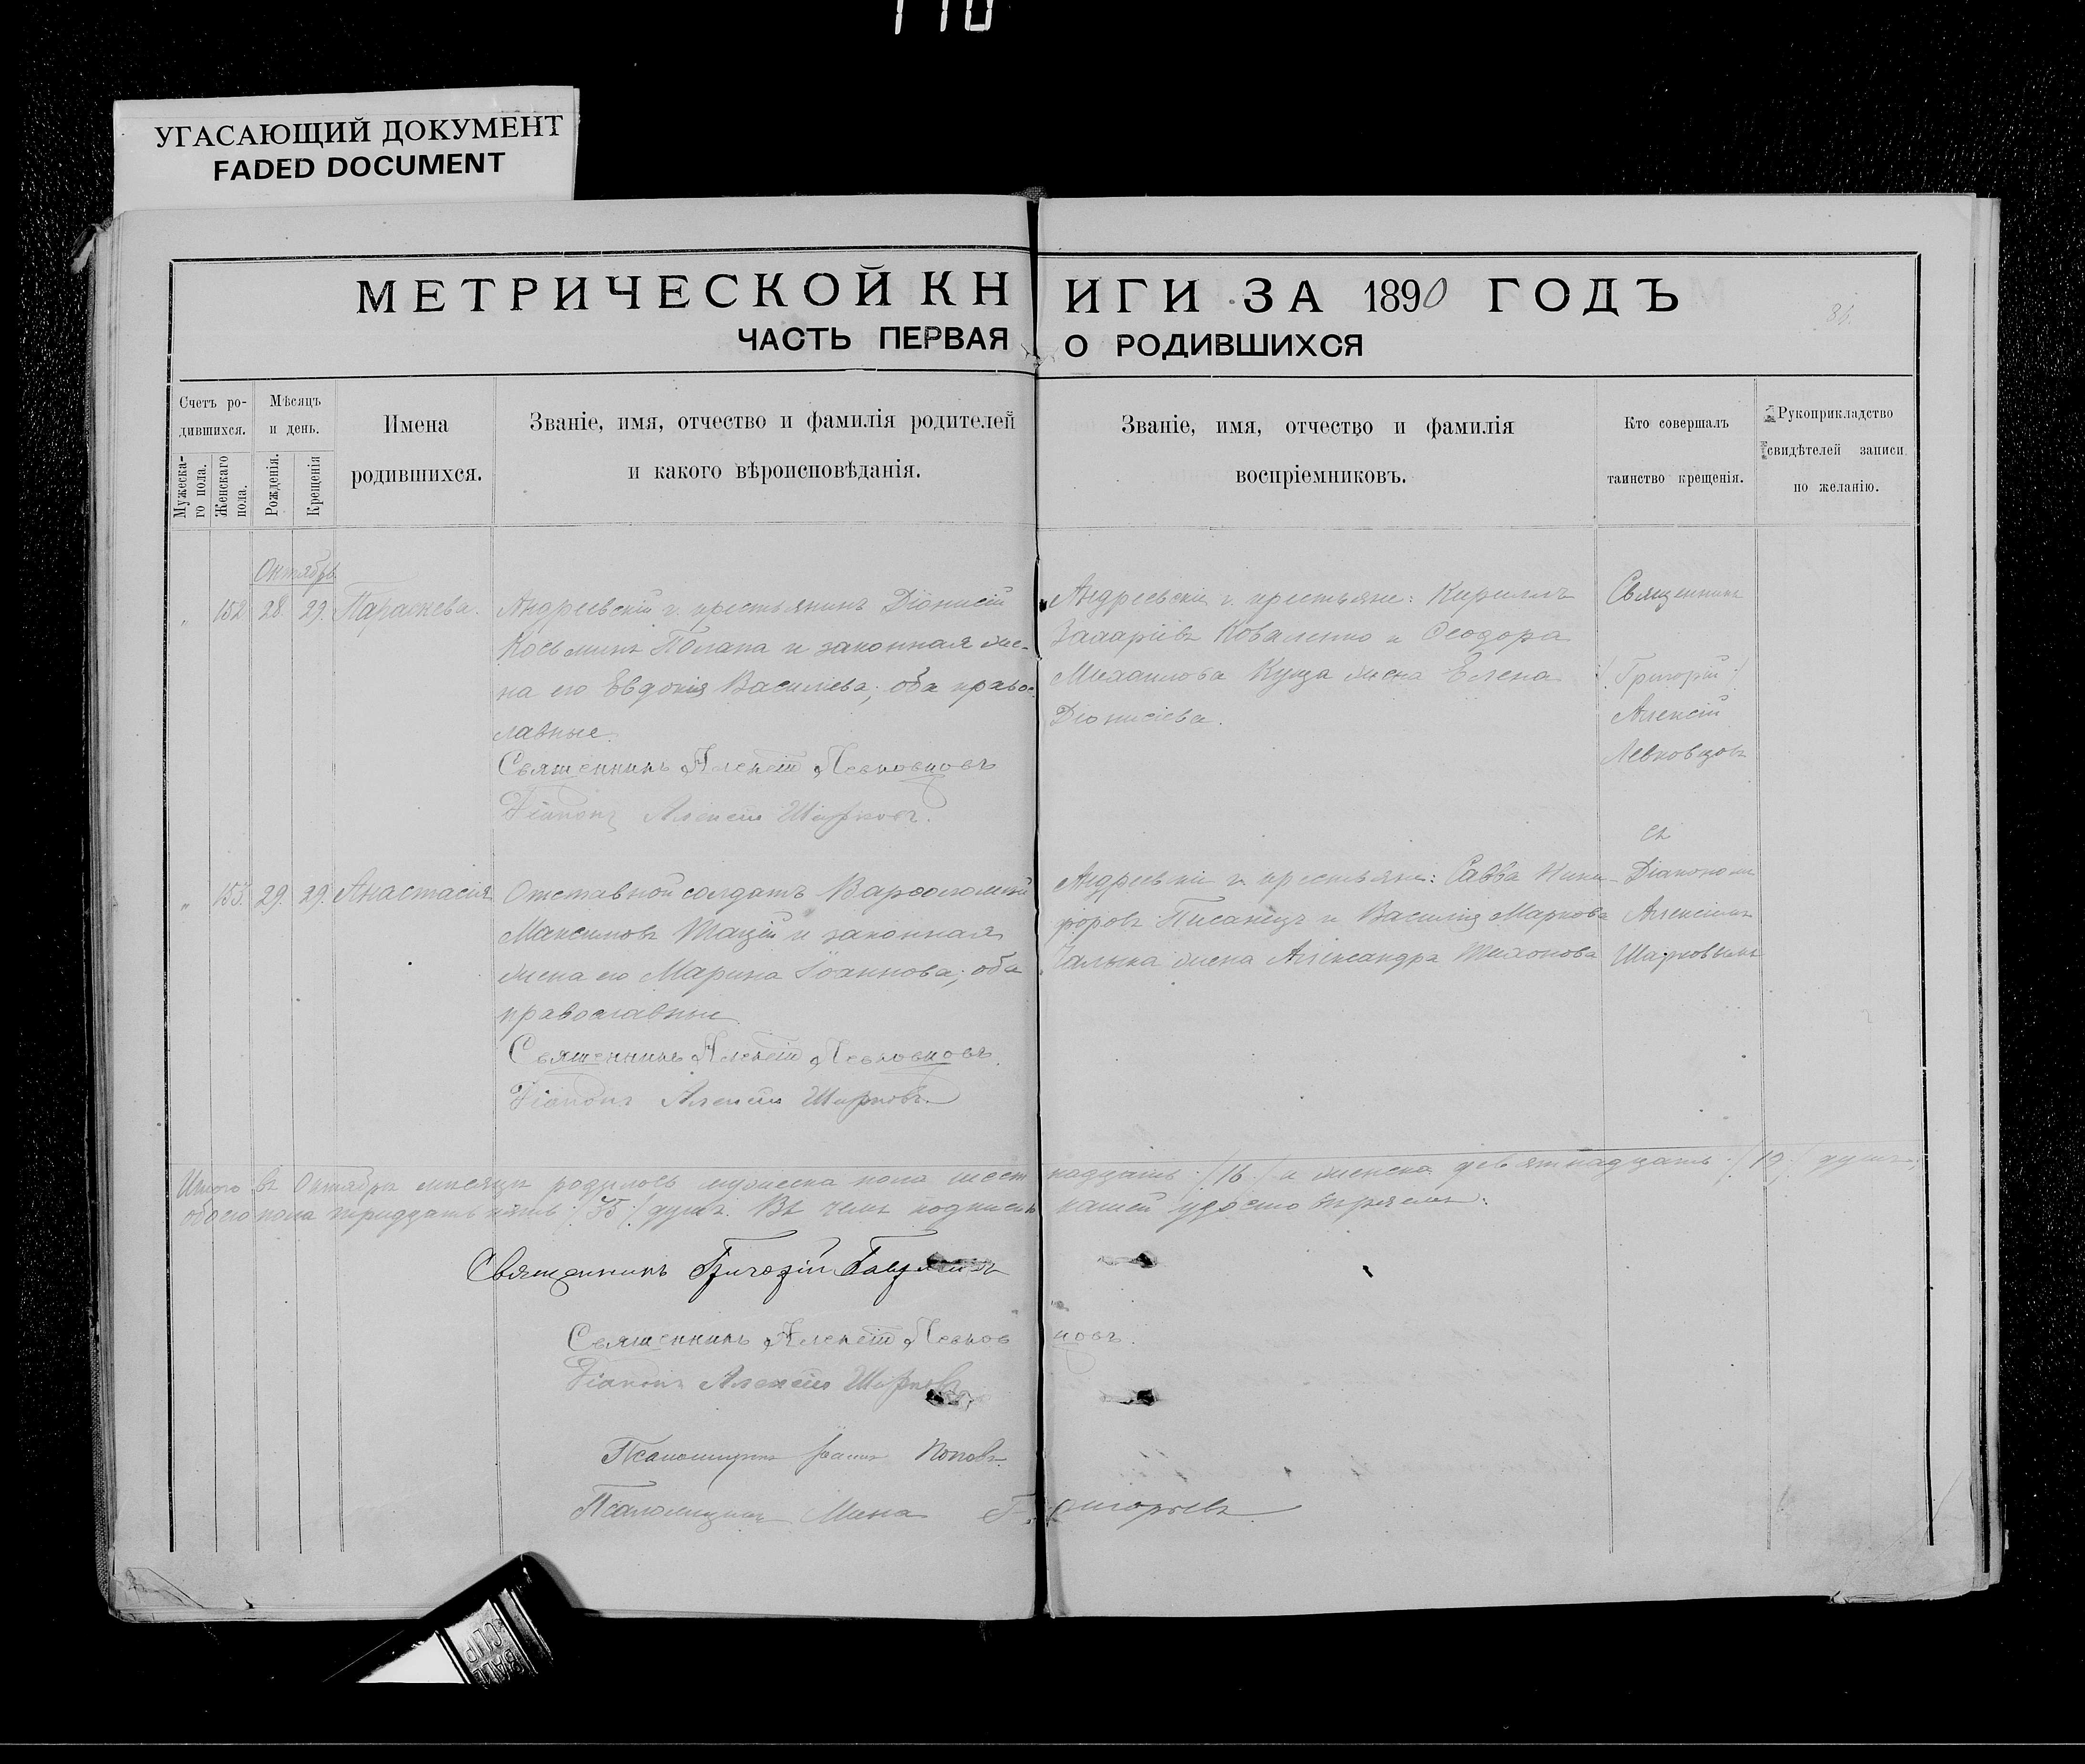 110
УГАСАЮЩИЙ ДОКУМЕНТ
FADED DOCUMENT
МЕТРИЧЕСКОЙ КНИГИ ЗА 1890 ГОДЪ
ЧАСТЬ ПЕРВАЯ О РОДИВШИХСЯ
Счетъ ро-
дившихся.
Мужеска-
го пола.
Женскаго
пола.
Мѣсяцъ
и день.
Рожденія.
Крещенія
Имена
родившихся.
Званіе, имя, отчество и фамилія родителей
и какого вѣроисповѣданія.
Званіе, имя, отчество и фамилія
воспріемниковъ.
Кто совершалъ
таинство крещенія.
Рукоприкладство
свидѣтелей записи
по желанію.
Октябрь
" 152 28. 29. Параскева.
Андреевскій г. крестьянинъ Діонисій
Косьминъ и законная же-
на его Евдокія Василіева; оба право-
славные.
Священникъ Алексій Левковцовъ
Діаконъ Алексій Шарковъ.
Андреевскіе г. крестьяне: Кириллъ
Захаріевъ Коваленко и Ѳеодора
Михаилова Куща жена Елена
Діонисіева.
Священникъ
/: Григорій :/
Алексій
Левковцовъ
съ
Діакономъ
Алексіемъ
Шарковымъ
" 153. 29. 29. Анастасія
Отставной солдатъ Варѳоломей
Максимовъ Тацій и законная
жена его Марина Іоаннова; оба
православные.
Священникъ Алексій Левковцовъ.
Діаконъ Алексій Шарковъ.
Андреевскіе г. крестьяне: Савва Ники-
форовъ Писанецъ и Василія Маркова
Галыка жена Александра Тихонова
Итого въ Октябрѣ мѣсяцѣ родилось мужеска пола шестнадцать /:16:/ и женска девятнадцать /:19:/ душъ,
обоего пола тридцать пять /:35:/ душъ. Въ чемъ подписью нашей удостовѣряемъ:
Священникъ Григорій
Священникъ Алексій Левковцовъ.
Діаконъ Алексій Шарковъ
Псаломщикъ Іоаннъ Поповъ.
Псаломщикъ Мина Григорьевъ